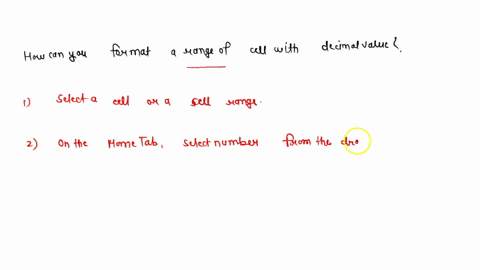 How can you format a range of cell with decimal value?.
1) Select a cell or a cell range.
2) On the Home Tab, select number from the dro